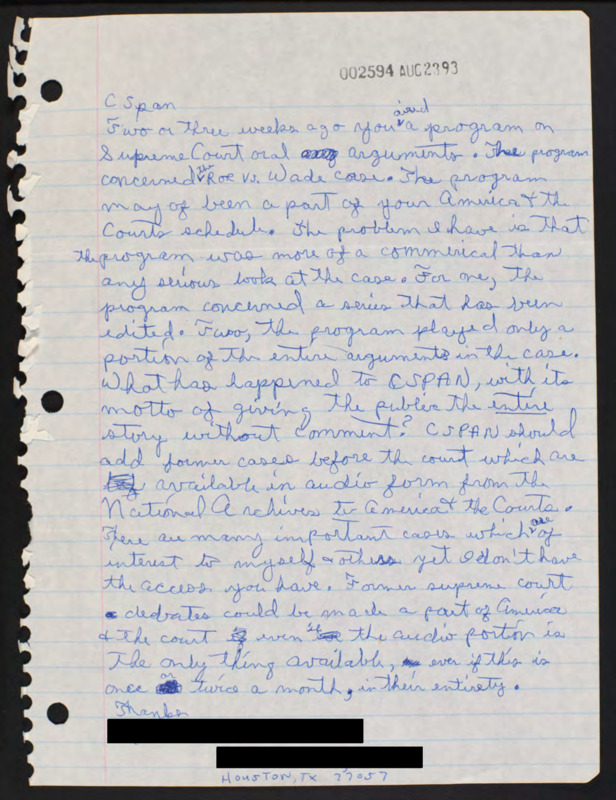 002594 AUG 23 93
C Span
Two or three weeks ago you aired a program on
Supreme Court oral arguments. The program
concerned the Roe vs. Wade case. The program
may of been a part of your America & the
Courts schedule. The problem I have is that
the program was more of a commerical than
any serious look at the case. For one, the
program concerned a series that has been
edited. Two, the program played only a
portion of the entire arguments in the case.
What has happened to CSPAN, with its
motto of giving the public the entire
story without comment? CSPAN should
add former cases before the court which are
available in audio form from the
National Archives to America & the Courts.
There are many important cases which are of
interest to myself & others yet I don't have
the access you have. Former supreme court
debrates could be made a part of America
& the court even if the audio portion is
the only thing available, ever if this is
once or twice a month, in their entirety.
Thanks
HOUSTON, TX 77057